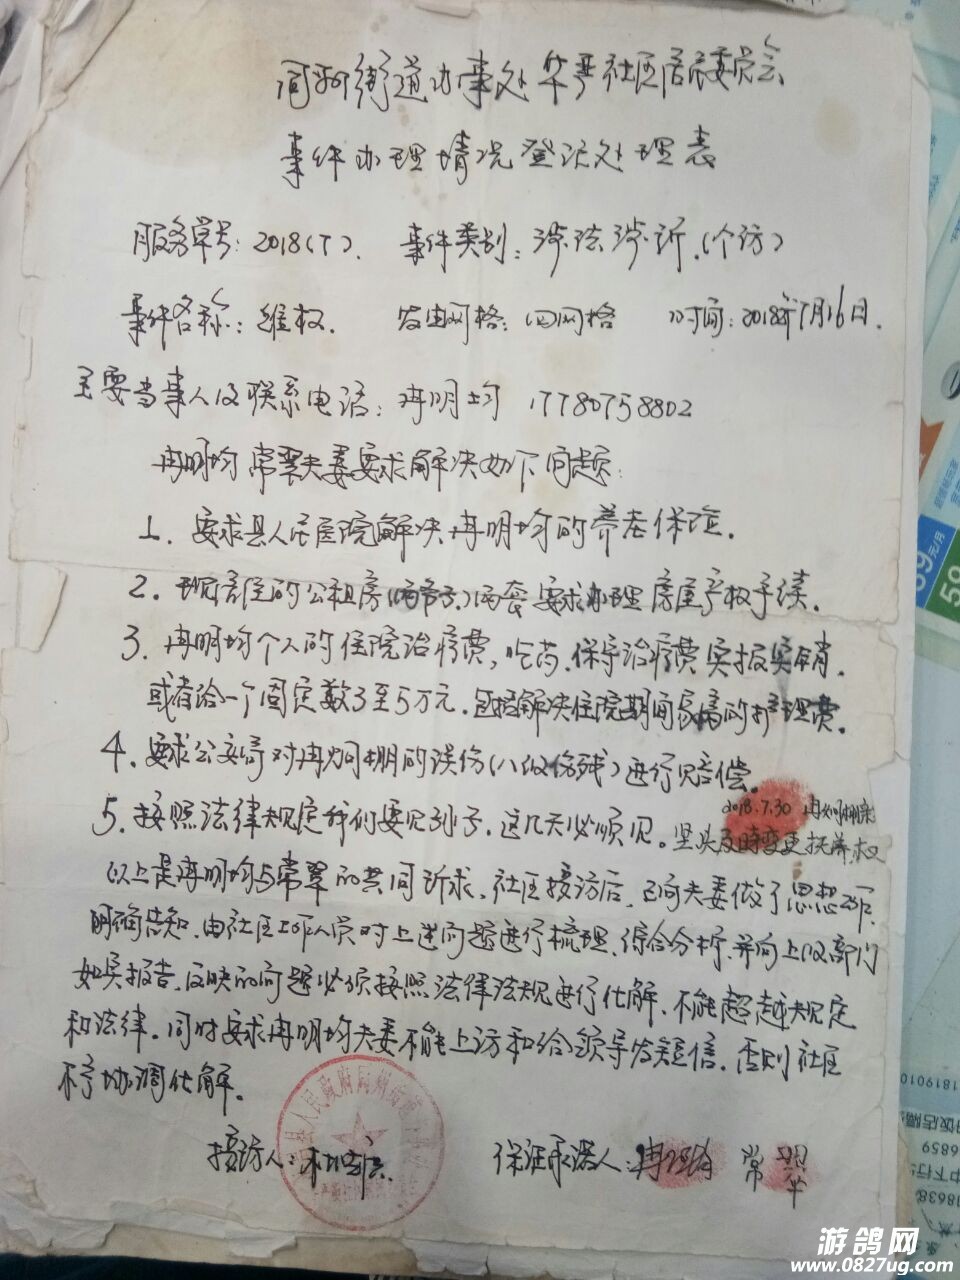 同州街道办事处华严社区居民委员会
事件办理情况登记处理表
服务单号：2018(7)． 事件类别：涉法涉诉．(个访)
事件名称：维权． 发由网格：四网格 时间：2018年7月16日．
主要当事人及联系电话：冉明均 17780758802
冉明均常翠夫妻要求解决如下问题：
1．要求县人民医院解决冉明均的养老保险．
2．现居住的公租房 两套 要求办理房屋产权手续．
3．冉明均个人的住院治疗费，吃药．保守治疗费实报实销．
或者给一个固定数3至5万元．包括解决住院期间 的护理费。
4．要求公安局对冉炯棚的误伤(八级伤残)进行赔偿。
2018.7.30
5．按照法律规定我们要见孙子．这几天必须见。坚决及时变更抚养权
以上是冉明均与常翠的共同诉求．社区接访后，已向夫妻做了思想工作．
明确告知．由社区工作人员对上述问题进行梳理．综合分析．并向上级部门
如实报告．反映的问题必须按照法律法规进行化解．不能超越规定
和法律．同时要求冉明均夫妻不能上访和给领导发短信．否则社区
不予协调化解．
接访人： 保证承诺人：冉明均 常翠
县人民政府同州街道
游鸽网
www.0827ug.com
元/月
59